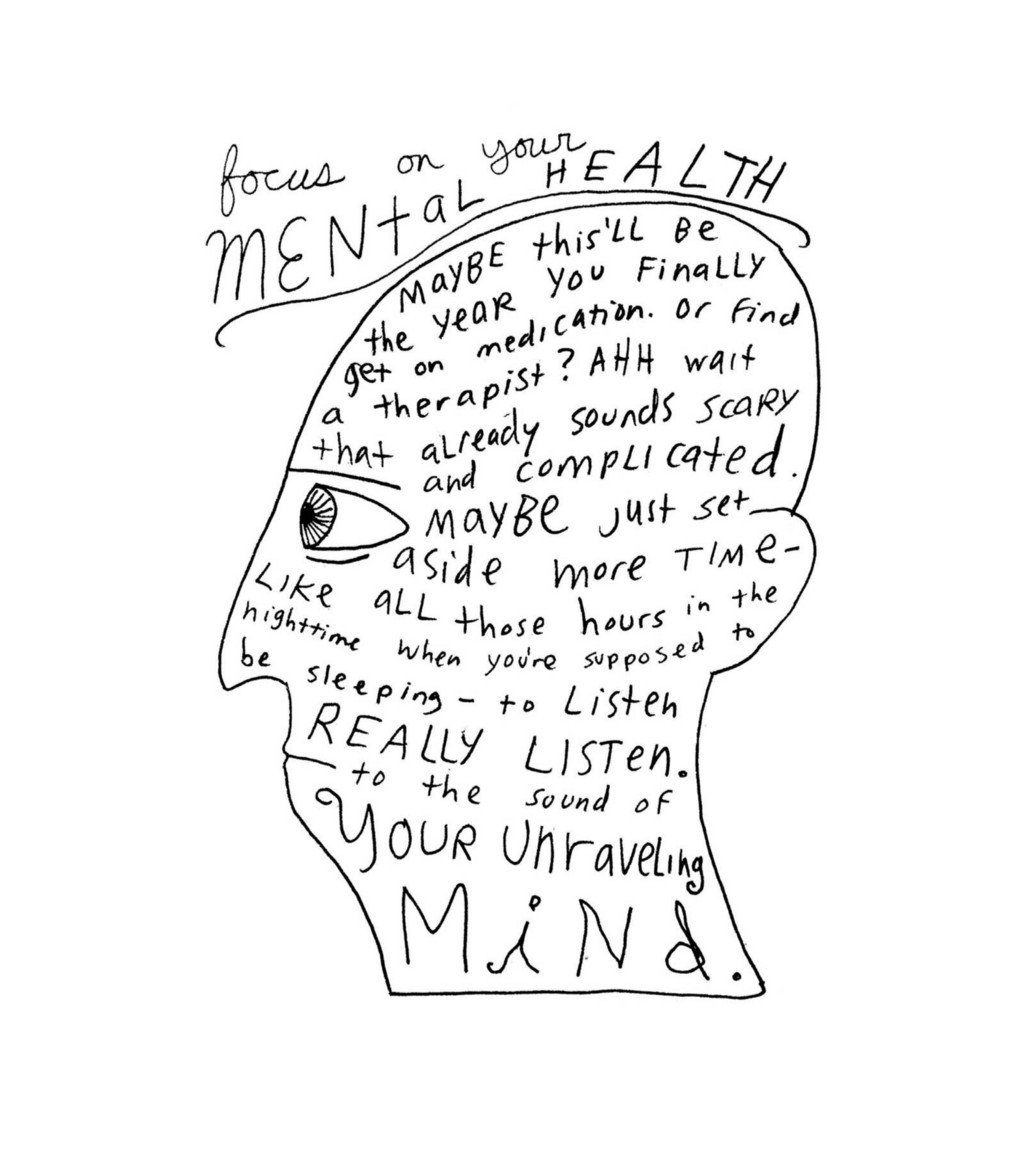 focus on your
MENtaL HEALTH
MAYBE this'LL Be
the yeaR you Finally
get on medication. Or find
a therapist? AHH wait
that already sounds scaRy
and complicated.
MAYBe just set
aside more TIMe-
LIKe aLL those hours in the
nighttime when you're supposed to
be sleeping - to Listen
REALLY LISTen.
to the sound of
YOUR Unraveling
MiNd.